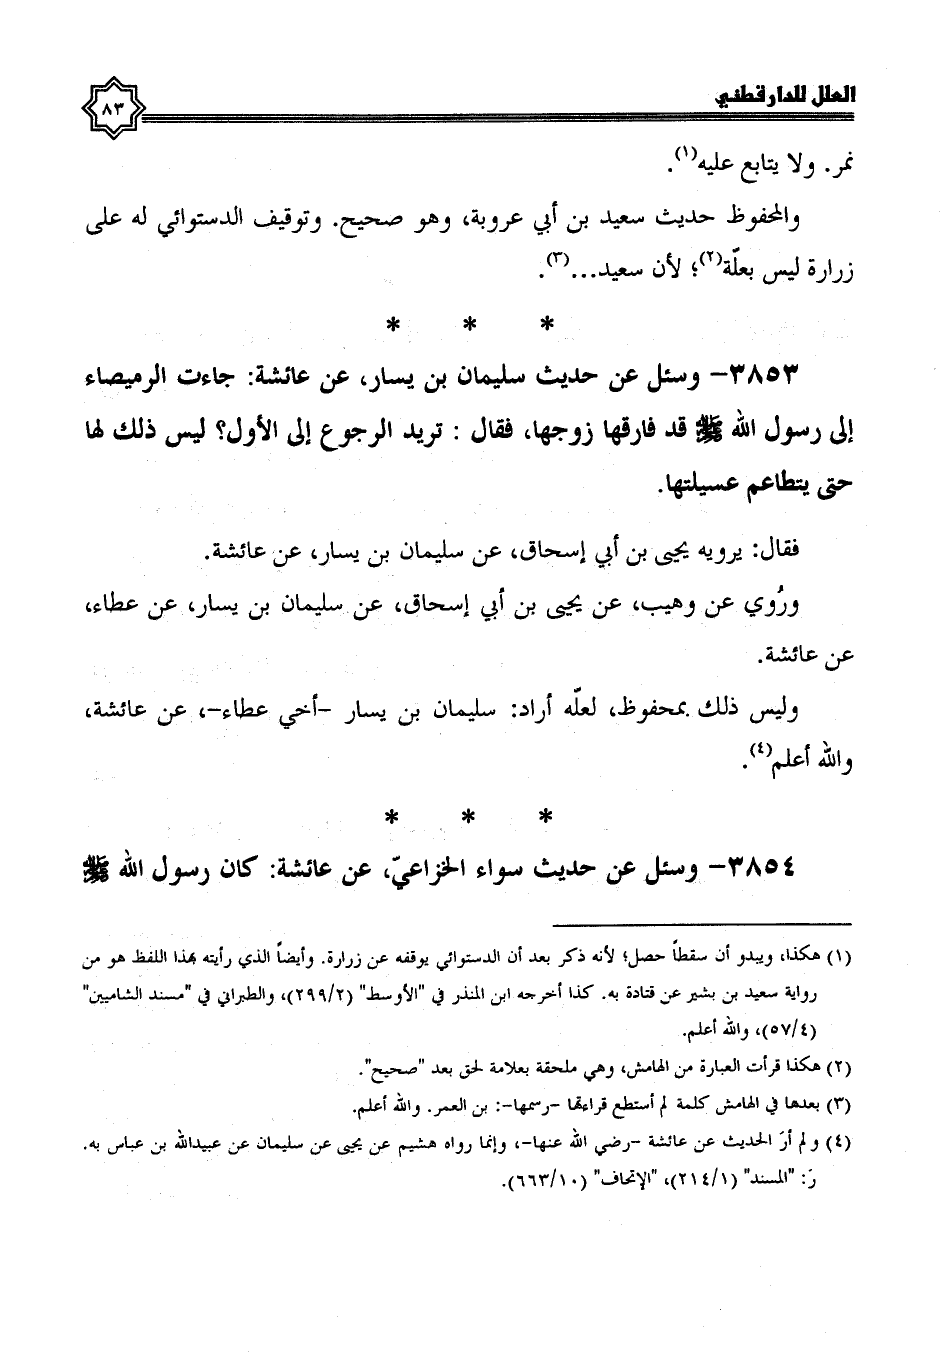 العلل للدارقطني
٨٣
نمر. ولا يتابع عليه(١).
والمحفوظ حديث سعيد بن أبي عروبة، وهو صحيح. وتوقيف الدستوائي له على
زرارة ليس بعلّة(٢)؛ لأن سعيد...(٣).
* * *
٣٨٥٣- وسئل عن حديث سليمان بن يسار، عن عائشة: جاءت الرميصاء
إلى رسول الله ﷺ قد فارقها زوجها، فقال : تريد الرجوع إلى الأول؟ ليس ذلك لها
حتى يتطاعم عسيلتها.
فقال: يرويه يحيى بن أبي إسحاق، عن سليمان بن يسار، عن عائشة.
ورُوي عن وهيب، عن يحيى بن أبي إسحاق، عن سليمان بن يسار، عن عطاء،
عن عائشة.
وليس ذلك بمحفوظ، لعلّه أراد: سليمان بن يسار -أخي عطاء-، عن عائشة،
والله أعلم(٤).
* * *
٣٨٥٤- وسئل عن حديث سواء الخزاعيّ، عن عائشة: كان رسول الله ﷺ
(١) هكذا، ويبدو أن سقطاً حصل؛ لأنه ذكر بعد أن الدستوائي يوقفه عن زرارة. وأيضاً الذي رأيته بهذا اللفظ هو من
رواية سعيد بن بشير عن قتادة به. كذا أخرجه ابن المنذر في "الأوسط" (٢٩٩/٢)، والطبراني في "مسند الشاميين"
(٥٧/٤)، والله أعلم.
(٢) هكذا قرأت العبارة من الهامش، وهي ملحقة بعلامة لحق بعد "صحيح".
(٣) بعدها في الهامش كلمة لم أستطع قراءتها -رسمها-: بن العمر. والله أعلم.
(٤) ولم أرَ الحديث عن عائشة -رضي الله عنها-، وإنما رواه هشيم عن يحيى عن سليمان عن عبيدالله بن عباس به.
رَ: "المسند" (٢١٤/١)، "الإتحاف" (٦٦٣/١٠).